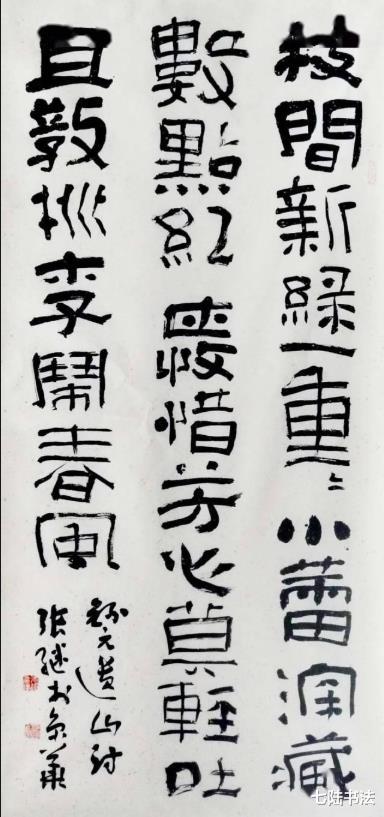 枝間新綠一重〻小蕾深藏
數點紅愛惜芳心莫輕吐
且教桃李鬧春風
錄元遺山詩
張继书京華
七陆书法